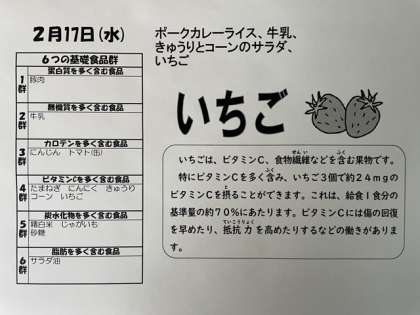 2月17日(水)
ポークカレーライス、牛乳、
きゅうりとコーンのサラダ、
いちご
6つの基礎食品群
1群
蛋白質を多く含む食品
豚肉
2群
無機質を多く含む食品
牛乳
3群
カロテンを多く含む食品
にんじん トマト(缶)
4群
ビタミンCを多く含む食品
たまねぎ にんにく きゅうり
コーン いちご
5群
炭水化物を多く含む食品
精白米 じゃがいも
砂糖
6群
脂肪を多く含む食品
サラダ油
いちご
いちごは、ビタミンC、食物繊維などを含む果物です。
特にビタミンCを多く含み、いちご3個で約24mgの
ビタミンCを摂ることができます。これは、給食1食分の
基準量の約70%にあたります。ビタミンCには傷の回復
を早めたり、抵抗力を高めたりするなどの働きがありま
す。